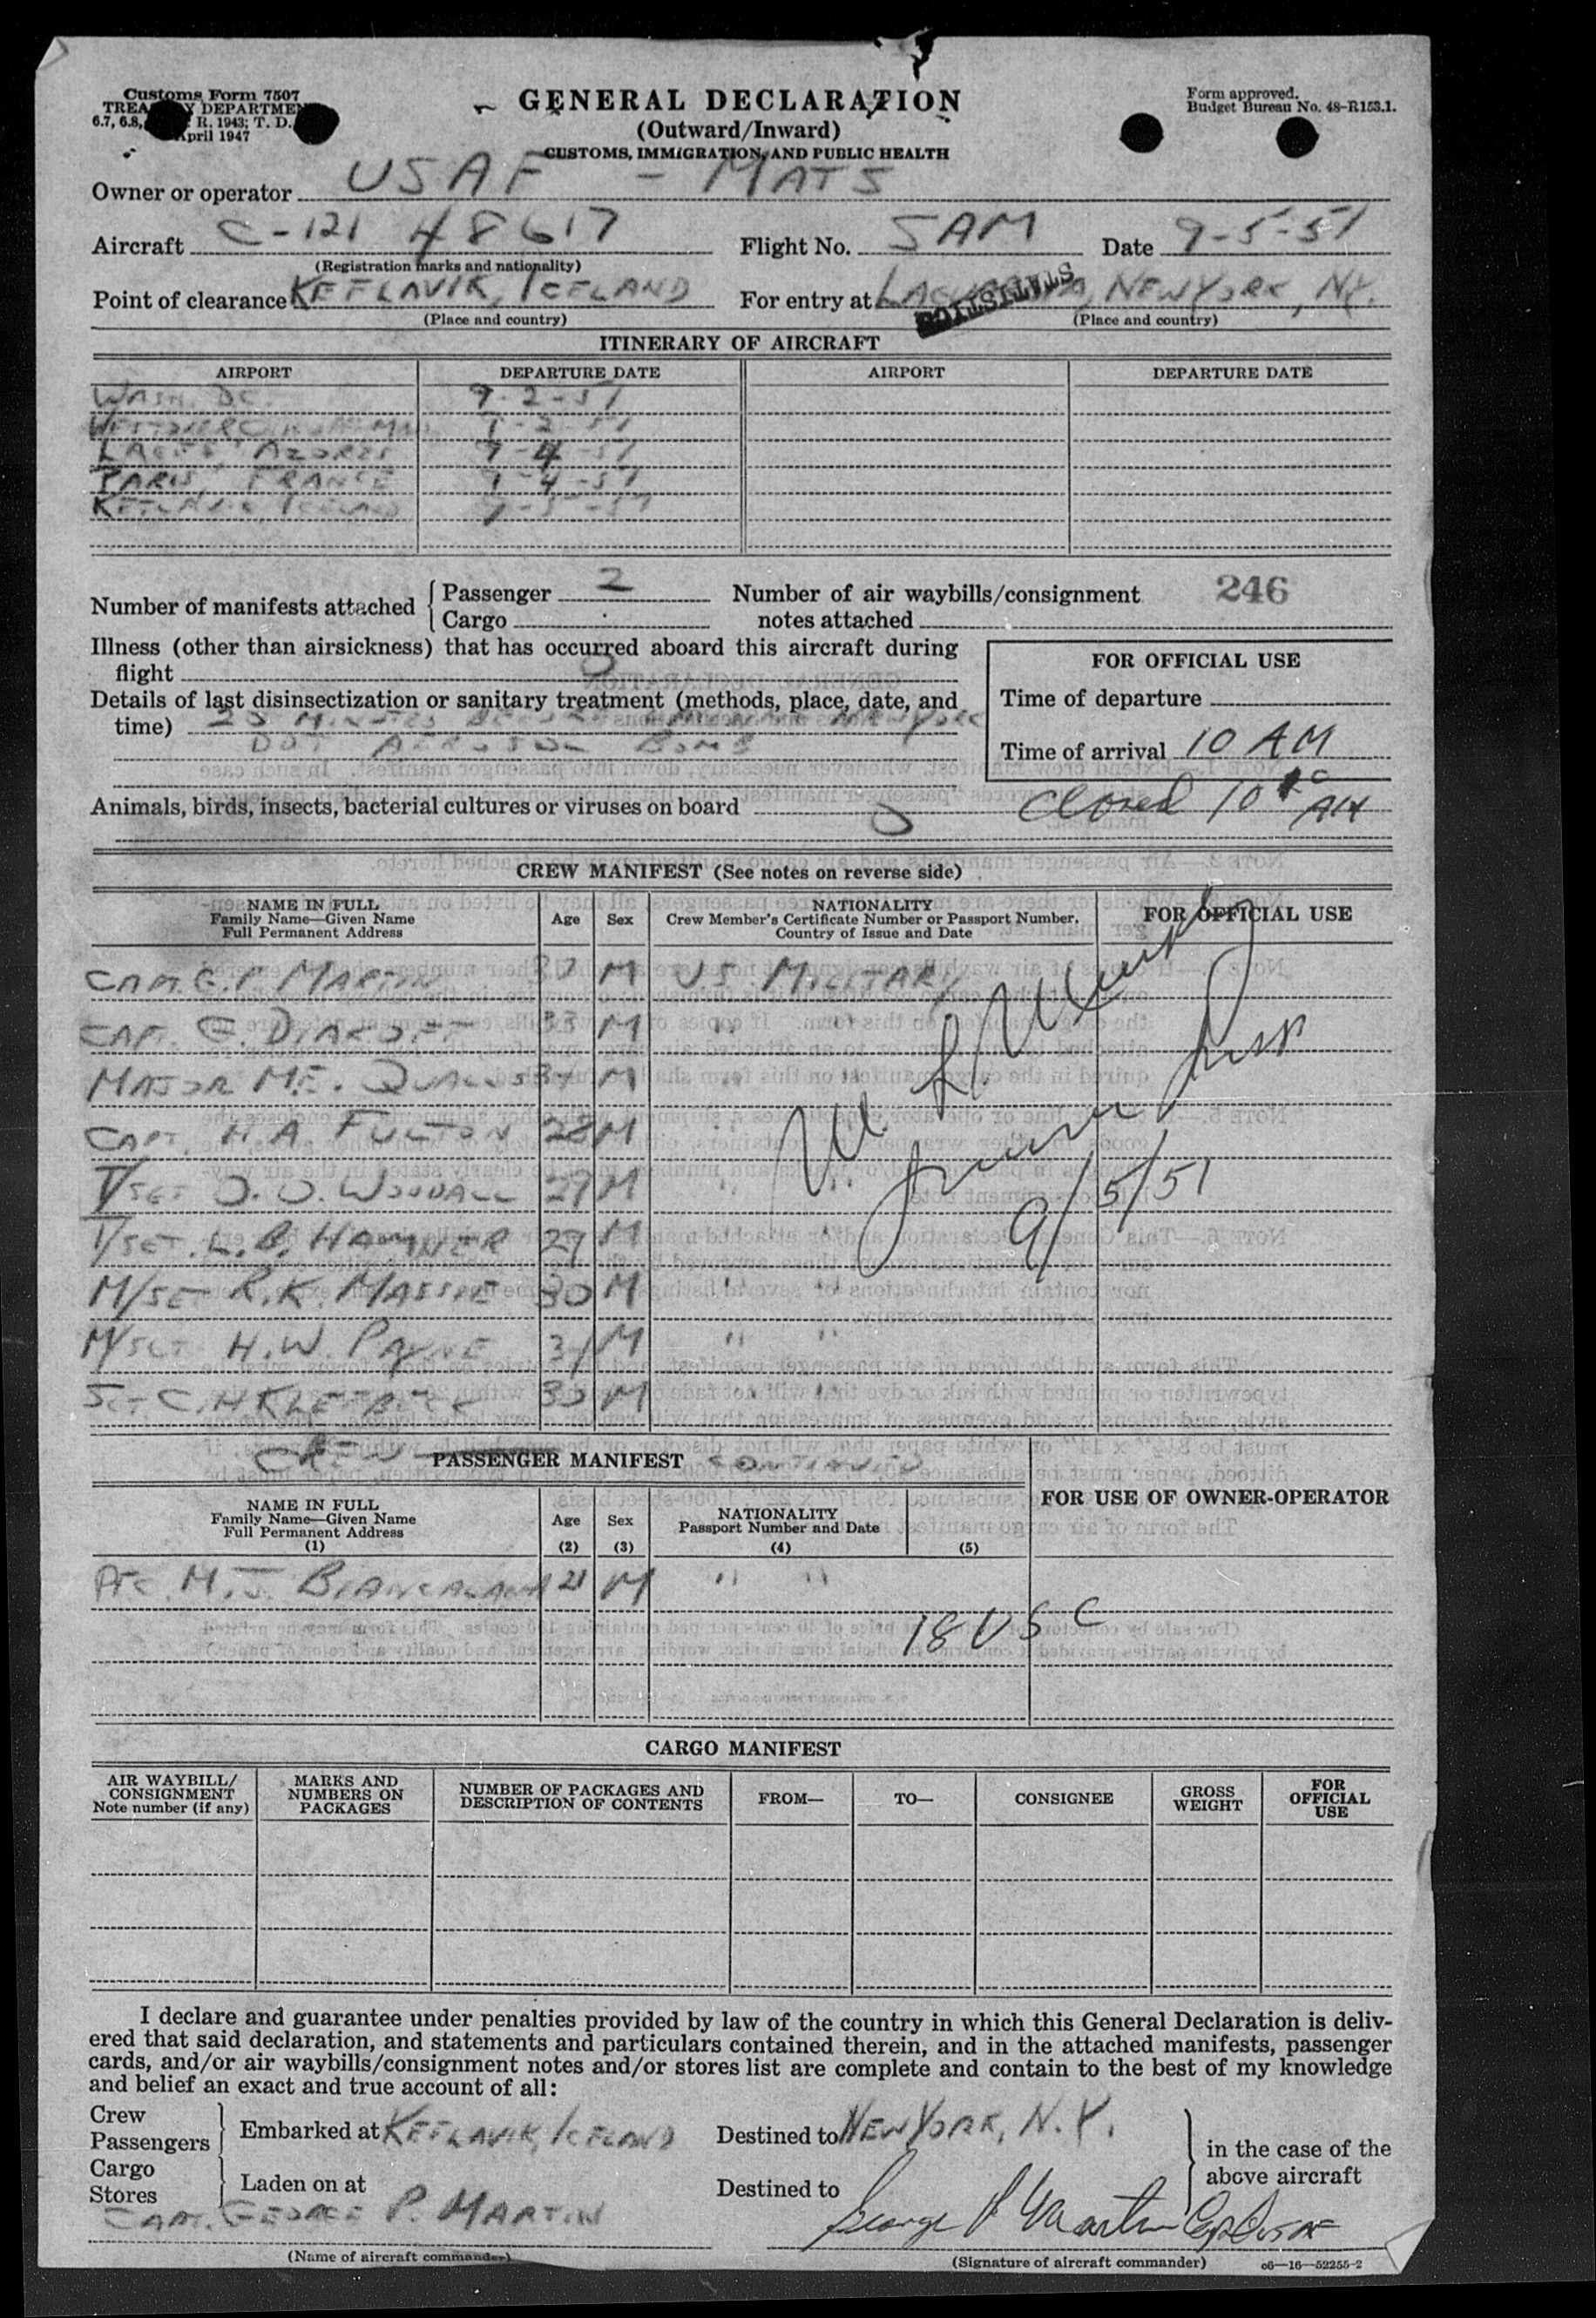 Customs Form 7507
TREASURY DEPARTMENT
6.7, 6.8, R. 1943; T. D.
April 1947
GENERAL DECLARATION
(Outward/Inward)
CUSTOMS, IMMIGRATION, AND PUBLIC HEALTH
Form approved.
Budget Bureau No. 48-R153.1.
Owner or operator USAF - MATS
Aircraft C-121 48617 Flight No. SAM Date 9-5-51
(Registration marks and nationality)
Point of clearance KEFLAVIK, ICELAND For entry at LAGUARDIA, NEW YORK, NY.
STATISTICS
(Place and country) (Place and country)
ITINERARY OF AIRCRAFT
AIRPORT DEPARTURE DATE AIRPORT DEPARTURE DATE
WASH. DC. 9-2-51
WESTOVER 9-2-51
LAGES, AZORES 9-4-51
PARIS, FRANCE 9-4-51
KEFLAVIK, ICELAND 9-5-51
Number of manifests attached Passenger 2 Number of air waybills/consignment 246
Cargo notes attached
Illness (other than airsickness) that has occurred aboard this aircraft during
flight 0
Details of last disinsectization or sanitary treatment (methods, place, date, and
time) 25 MINUTES BEFORE NEW YORK
AEROSOL BOMB
FOR OFFICIAL USE
Time of departure
Time of arrival 10 AM
Animals, birds, insects, bacterial cultures or viruses on board 0
Closed 10 AM
CREW MANIFEST (See notes on reverse side)
NAME IN FULL
Family Name—Given Name
Full Permanent Address
Age Sex
NATIONALITY
Crew Member's Certificate Number or Passport Number,
Country of Issue and Date
FOR OFFICIAL USE
CAPT. G. P. MARTIN 37 M U.S. MILITARY
CAPT. 33 M " "
MAJOR M.E. M " "
CAPT. H A FULTON 28 M " "
T/SGT O. O. WOODALL 29 M " "
T/SGT. L. B. HAMNER 29 M "
M/SGT R. K. MASSIE 30 M " "
M/SGT H. W. PAYNE 31 M " "
SGT C. H 30 M " "
9/5/51
CREW PASSENGER MANIFEST CONTINUED
NAME IN FULL
Family Name—Given Name
Full Permanent Address
(1)
Age
(2)
Sex
(3)
NATIONALITY
Passport Number and Date
(4) (5)
FOR USE OF OWNER-OPERATOR
PFC M. J. 21 M " "
18 USC
CARGO MANIFEST
AIR WAYBILL/
CONSIGNMENT
Note number (if any)
MARKS AND
NUMBERS ON
PACKAGES
NUMBER OF PACKAGES AND
DESCRIPTION OF CONTENTS
FROM— TO— CONSIGNEE
GROSS
WEIGHT
FOR
OFFICIAL
USE
I declare and guarantee under penalties provided by law of the country in which this General Declaration is deliv-
ered that said declaration, and statements and particulars contained therein, and in the attached manifests, passenger
cards, and/or air waybills/consignment notes and/or stores list are complete and contain to the best of my knowledge
and belief an exact and true account of all:
Crew
Passengers Embarked at KEFLAVIK, ICELAND Destined to NEW YORK, N.Y.
in the case of the
above aircraft
Cargo
Stores Laden on at Destined to
CAPT. GEORGE P. MARTIN George P Martin Capt USAF
(Name of aircraft commander) (Signature of aircraft commander) c6—16—52255-2